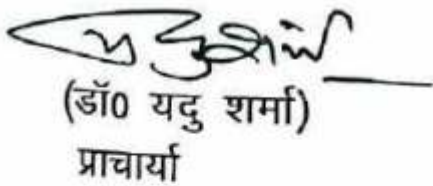 (डॉ0 यदु शर्मा)
प्राचार्या